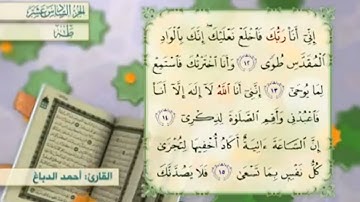 الجزء السادس عشر
طه
إِنِّىٓ أَنَا۠ رَبُّكَ فَٱخْلَعْ نَعْلَيْكَ ۖ إِنَّكَ بِٱلْوَادِ
ٱلْمُقَدَّسِ طُوًى ١٢ وَأَنَا ٱخْتَرْتُكَ فَٱسْتَمِعْ
لِمَا يُوحَىٰٓ ١٣ إِنَّنِىٓ أَنَا ٱللَّهُ لَآ إِلَٰهَ إِلَّآ أَنَا۠
فَٱعْبُدْنِى وَأَقِمِ ٱلصَّلَوٰةَ لِذِكْرِىٓ ١٤
إِنَّ ٱلسَّاعَةَ ءَاتِيَةٌ أَكَادُ أُخْفِيهَا لِتُجْزَىٰ
كُلُّ نَفْسٍۭ بِمَا تَسْعَىٰ ١٥ فَلَا يَصُدَّنَّكَ
القارئ: أحمد الدباغ